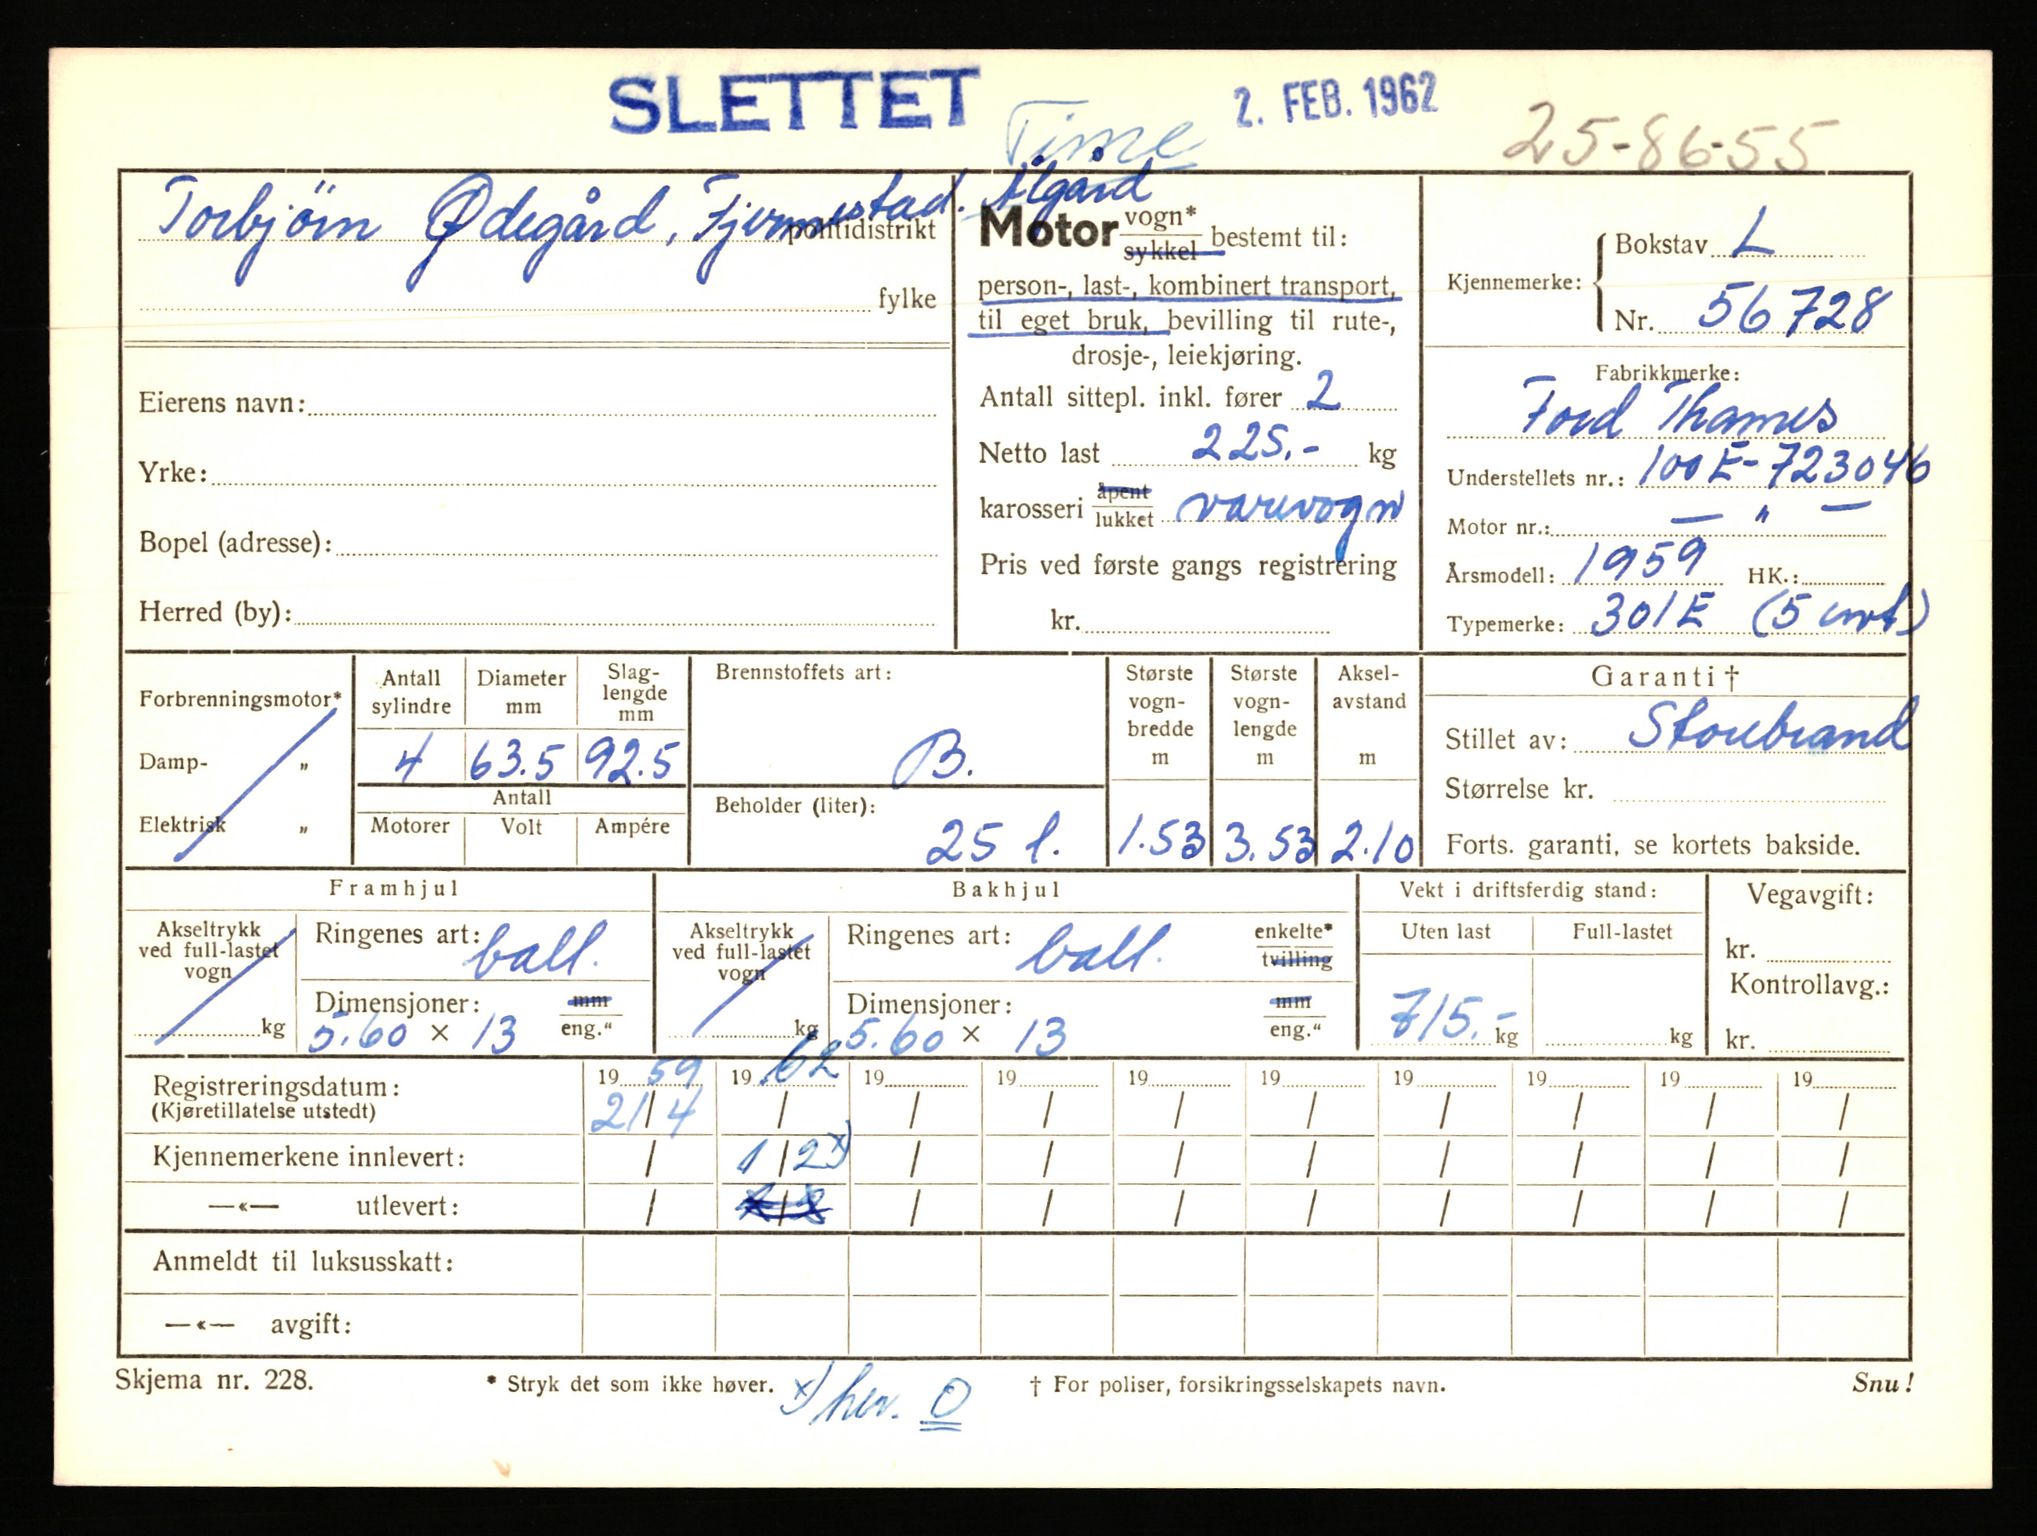 SLETTET
Time
2. FEB. 1962
25-86-55
Torbjörn Ødegård, Fjermestad. Ålgård
politidistrikt
fylke
Eierens navn:
Yrke:
Bopel (adresse):
Herred (by):
Motor vogn* sykkel bestemt til:
person-, last-, kombinert transport,
til eget bruk, bevilling til rute-,
drosje-, leiekjøring.
Antall sittepl. inkl. fører 2
Netto last 225.- kg
karosseri åpent lukket varevogn
Pris ved første gangs registrering
kr.
Kjennemerke: Bokstav L
Nr. 56728
Fabrikkmerke:
Ford Thames
Understellets nr.: 100E-723046
Motor nr.: — " —
Årsmodell: 1959 HK.:
Typemerke: 301E (5 cwt)
Forbrenningsmotor*
Damp- „
Elektrisk „
Antall sylindre 4
Diameter mm 63.5
Slaglengde mm 92.5
Antall
Motorer Volt Ampére
Brennstoffets art:
B.
Beholder (liter):
25 l.
Største vogn-bredde m 1.53
Største vogn-lengde m 3.53
Aksel-avstand m 2.10
Garanti †
Stillet av: Storebrand
Størrelse kr.
Forts. garanti, se kortets bakside.
Framhjul
Akseltrykk ved full-lastet vogn kg
Ringenes art: ball.
Dimensjoner: mm eng."
5.60 × 13
Bakhjul
Akseltrykk ved full-lastet vogn kg
Ringenes art: ball. enkelte* tvilling
Dimensjoner: mm eng."
5.60 × 13
Vekt i driftsferdig stand:
Uten last Full-lastet
715.- kg kg
Vegavgift:
kr.
Kontrollavg.:
kr.
Registreringsdatum: 19 59 19 62 19 19 19 19 19 19 19 19
(Kjøretillatelse utstedt) 21/4 / / / / / / / / /
Kjennemerkene innlevert: / 1/2 x) / / / / / / / /
—«— utlevert: / / / / / / / / /
Anmeldt til luksusskatt:
—«— avgift:
Skjema nr. 228. * Stryk det som ikke høver. † For poliser, forsikringsselskapets navn. Snu!
x) her. O